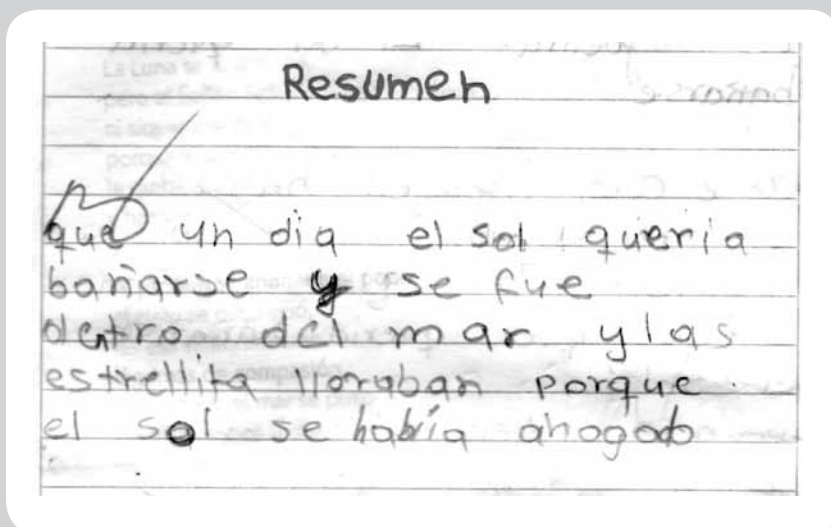 Resumen
que un dia el sol queria
bañarse y se fue
dentro del mar y las
estrellita lloraban porque
el sol se había ahogado